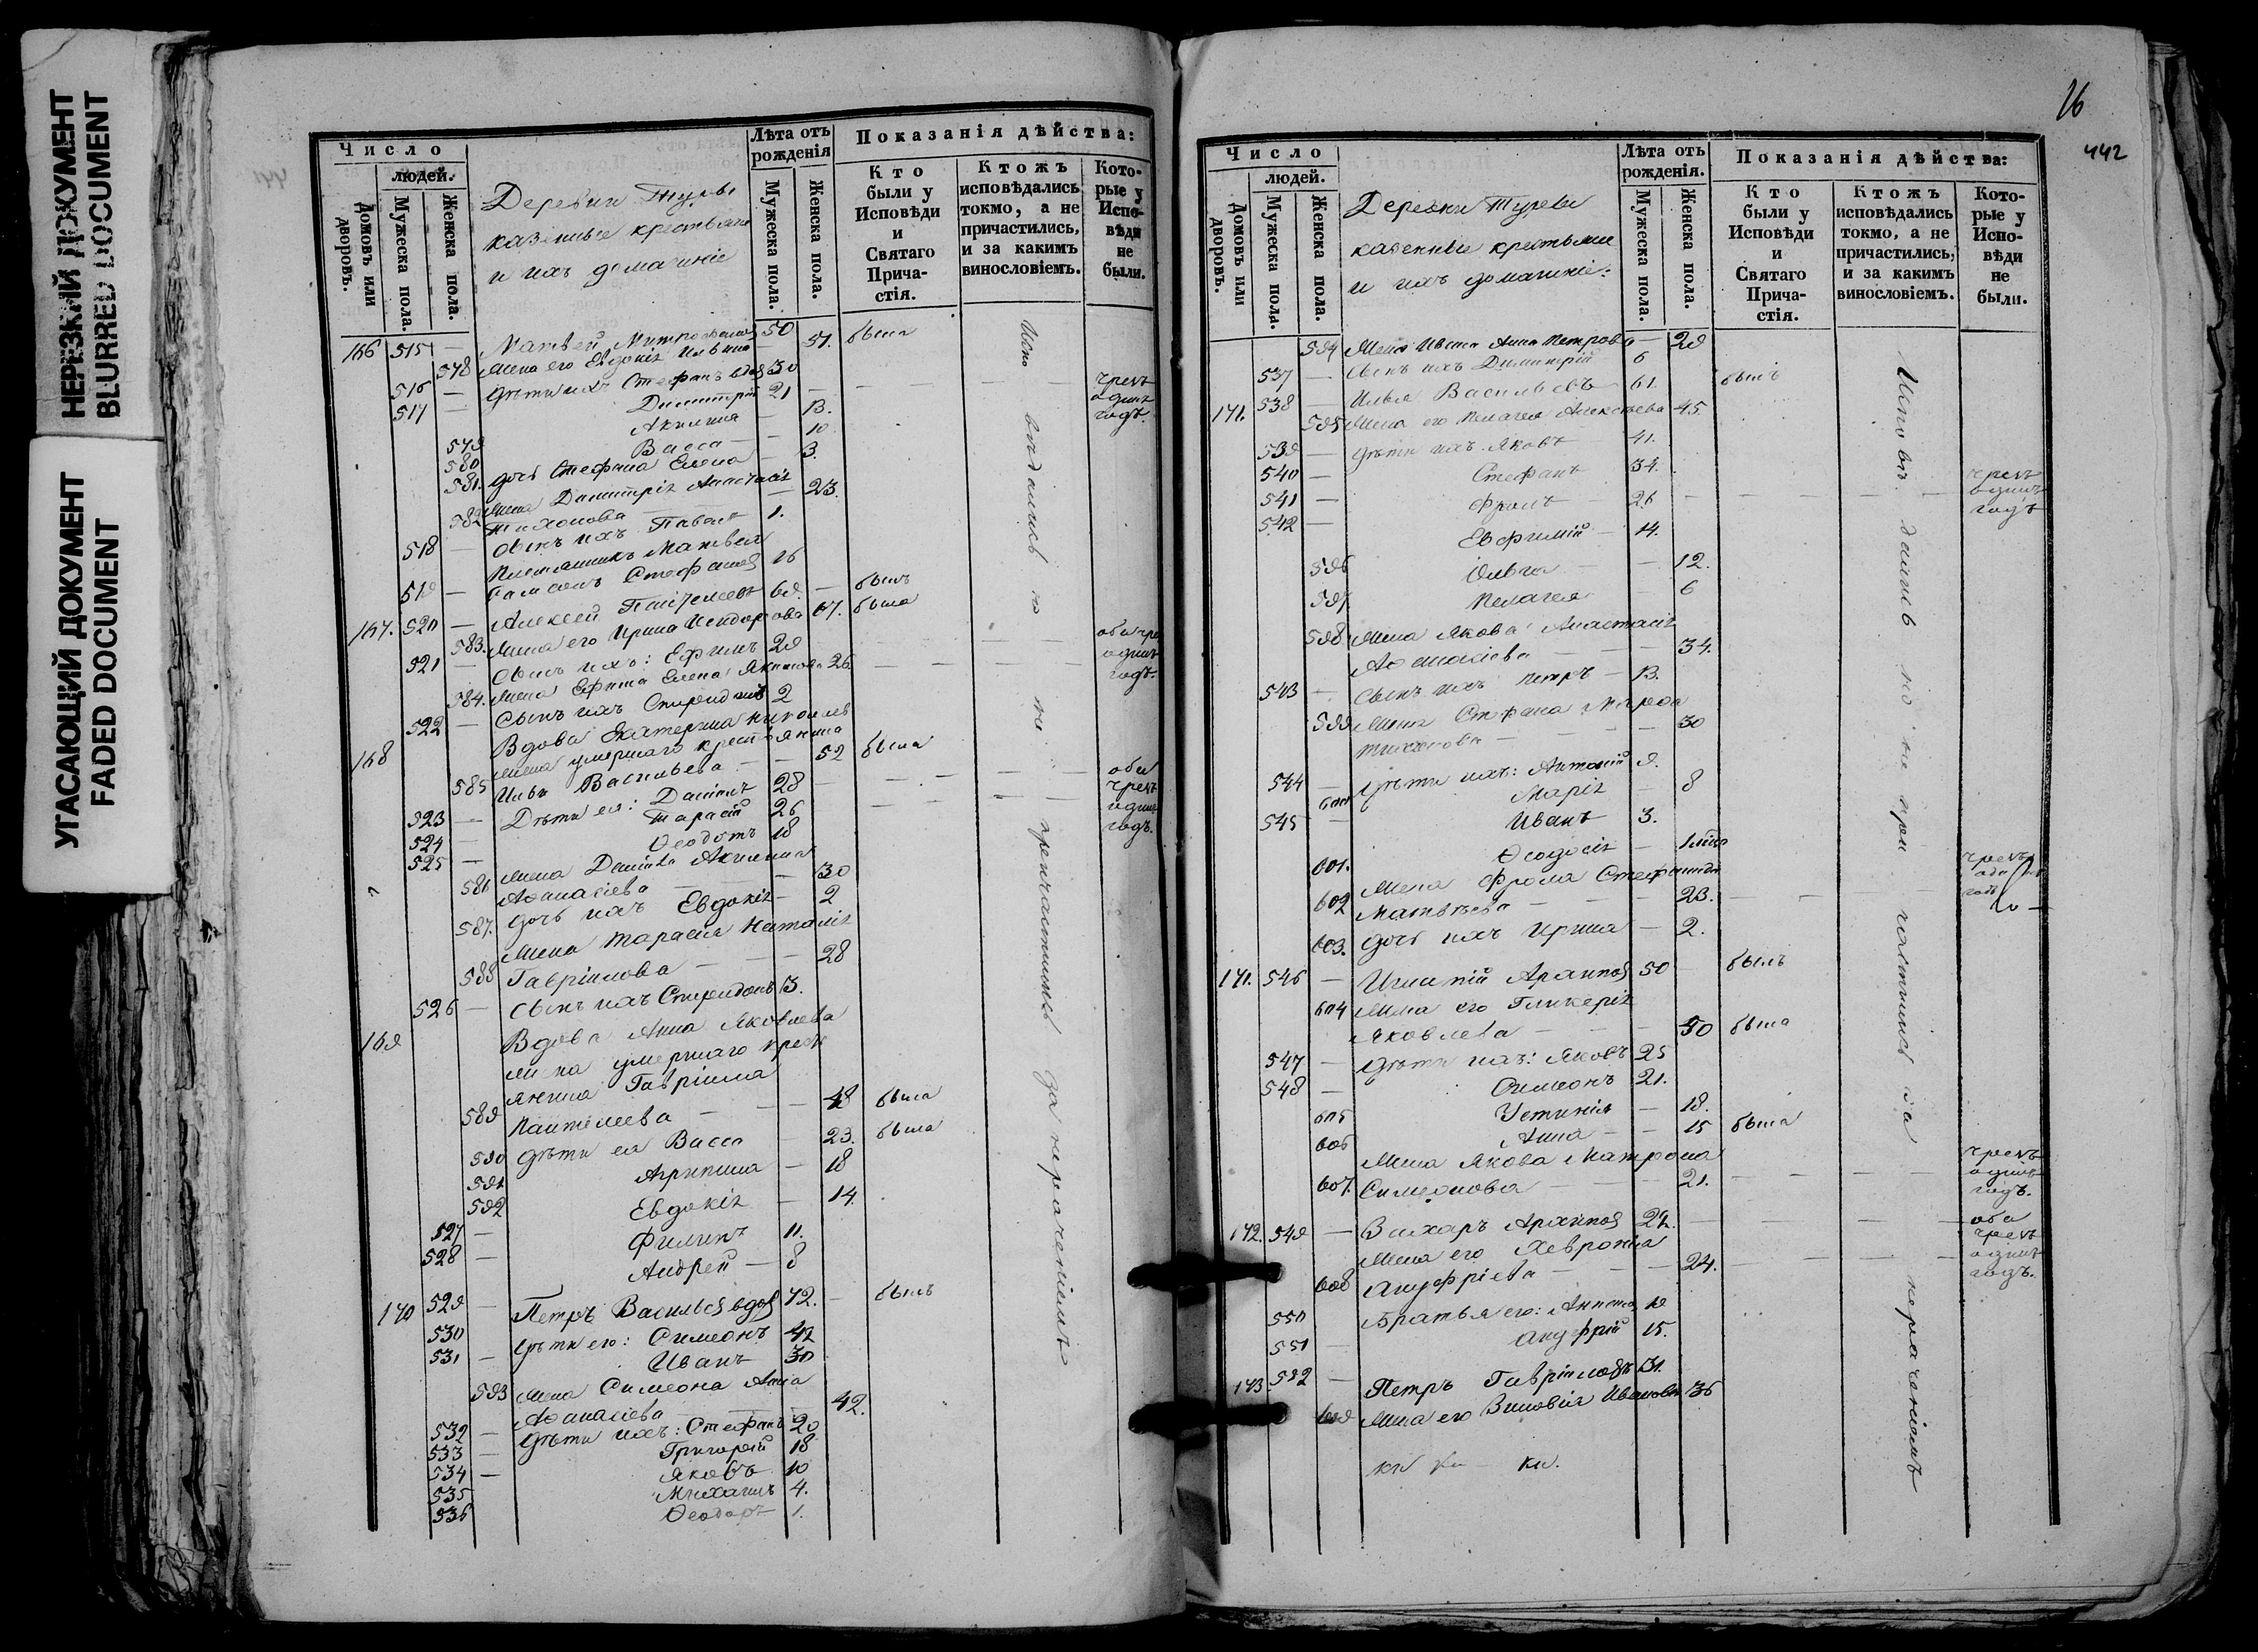 НЕРЕЗКИЙ ДОКУМЕНТ
BLURRED DOCUMENT
УГАСАЮЩИЙ ДОКУМЕНТ
FADED DOCUMENT
Число
людей.
Домовъ или дворовъ.
Мужеска пола.
Женска пола.
Деревни
казенные крестьяне
и ихъ домашніе
Лѣта отъ рожденія
Мужеска пола.
Женска пола.
Показанія дѣйства:
Кто были у Исповѣди и Святаго Причастія.
Ктожъ исповѣдались токмо, а не причастились, и за какимъ винословіемъ.
Которые у Исповѣди не были.
166 515 — Матвей Митрофановъ 50
578 Жена его Евдокія Ильина 51. была
516 — Дѣти ихъ Стефанъ вдов 30
517 — Димитрій 21
579 Акилина — 13.
580 Васса — 10
581. Дочь Стефана Елена — 3.
Жена Димитрія Анастасія
582 Тихонова — 23.
518 — Сынъ ихъ Павелъ 1.
Племянникъ Матвея
519 — Стефановъ 16
чрезъ одинъ годъ.
167. 520 — Алексей 69. — былъ
583. Жена его Ирина Исидорова 67. была
521 — Сынъ ихъ: Ефимъ 29
584. Жена Ефима Елена Якимова 26
522 — Сынъ ихъ Спиридонъ 2
оба чрезъ одинъ годъ.
168 Вдова Екатерина
жена умершаго крестьянина
585 Ильи Васильева — 52 была
523 — Дѣти ея: Даніилъ 28
524 — Тарасій 26
525 — Ѳеодотъ 18
Жена Даніила Акилина
586 Аѳанасіева — 30
587. Дочь ихъ Евдокія — 2
Жена Тарасія Наталія
588 Гавріилова — 28
526 — Сынъ ихъ Спиридонъ 3.
оба чрезъ одинъ годъ.
169 Вдова Анна Яковлева
жена умершаго крест
янина Гавріила
589 Пантелеева — 48 была
590 Дѣти ея Васса — 23. была
591 Агрипина — 18
592 Евдокія — 14.
527 — Филипъ 11.
528 — Андрей — 8
170 529 — Петръ Васильев вдов 72. — былъ
530 Дѣти его: Симеонъ 42
531 — Иванъ 30
593 Жена Симеона Анна
Аѳанасіева — 42.
532 — Дѣти ихъ: Стефанъ 20
533 — Григорій 18
534 — Яковъ 10
535 Михаилъ 4.
536 Ѳеодоръ 1.
Исповѣдались но не причастились за нераченіемъ
16
442
Число
людей.
Домовъ или дворовъ.
Мужеска пола.
Женска пола.
Деревни
казенные крестьяне
и ихъ домашніе:
Лѣта отъ рожденія.
Мужеска пола.
Женска пола.
Показанія дѣйства:
Кто были у Исповѣди и Святаго Причастія.
Ктожъ исповѣдались токмо, а не причастились, и за какимъ винословіемъ.
Которые у Исповѣди не были.
594 Жена Ивана Анна Петрова — 29
537 — Сынъ ихъ Димитрій 6
171. 538 — Илья Васильевъ 61. былъ
595 Жена его Пелагея Алексѣева 45.
539 — Дѣти ихъ: Яковъ 41.
540 — Стефанъ 34.
541 — Фролъ 26
542 — Евфимій — 14.
чрезъ одинъ годъ
596 Ольга — 12.
597 Пелагея — 6
598 Жена Якова Анастасія
Аѳанасіева — 34.
543 — Сынъ ихъ Петръ — 13.
599 Жена Стефана
Тихонова — 30
544 — Дѣти ихъ: Антоній 9.
600 Марія — 8
545 — Иванъ 3.
601. Ѳеодосія —
Жена Фрола
602 Матвѣева — 23.
603. Дочь ихъ Ирина — 2.
171. 546 — Игнатій Архипов 50 — былъ
604 Жена его Гликерія
Яковлева — 50 была
547 — Дѣти ихъ: Яковъ 25
548 — Симеонъ 21.
605 Устинія — 18.
606 Анна — 15 была
Жена Якова Матрона
607. Симеонова — 21.
чрезъ одинъ годъ.
172. 549 — Архипов
Жена его Хеврония
608 Ануфріева — 24.
оба чрезъ одинъ годъ.
550 Братья его: 19
551 — Ануфрій 15.
173 552 — Петръ Гавріиловъ 31.
609 Жена его Зиновія Иванова 36
Исповѣдались но не причастились за нераченіемъ